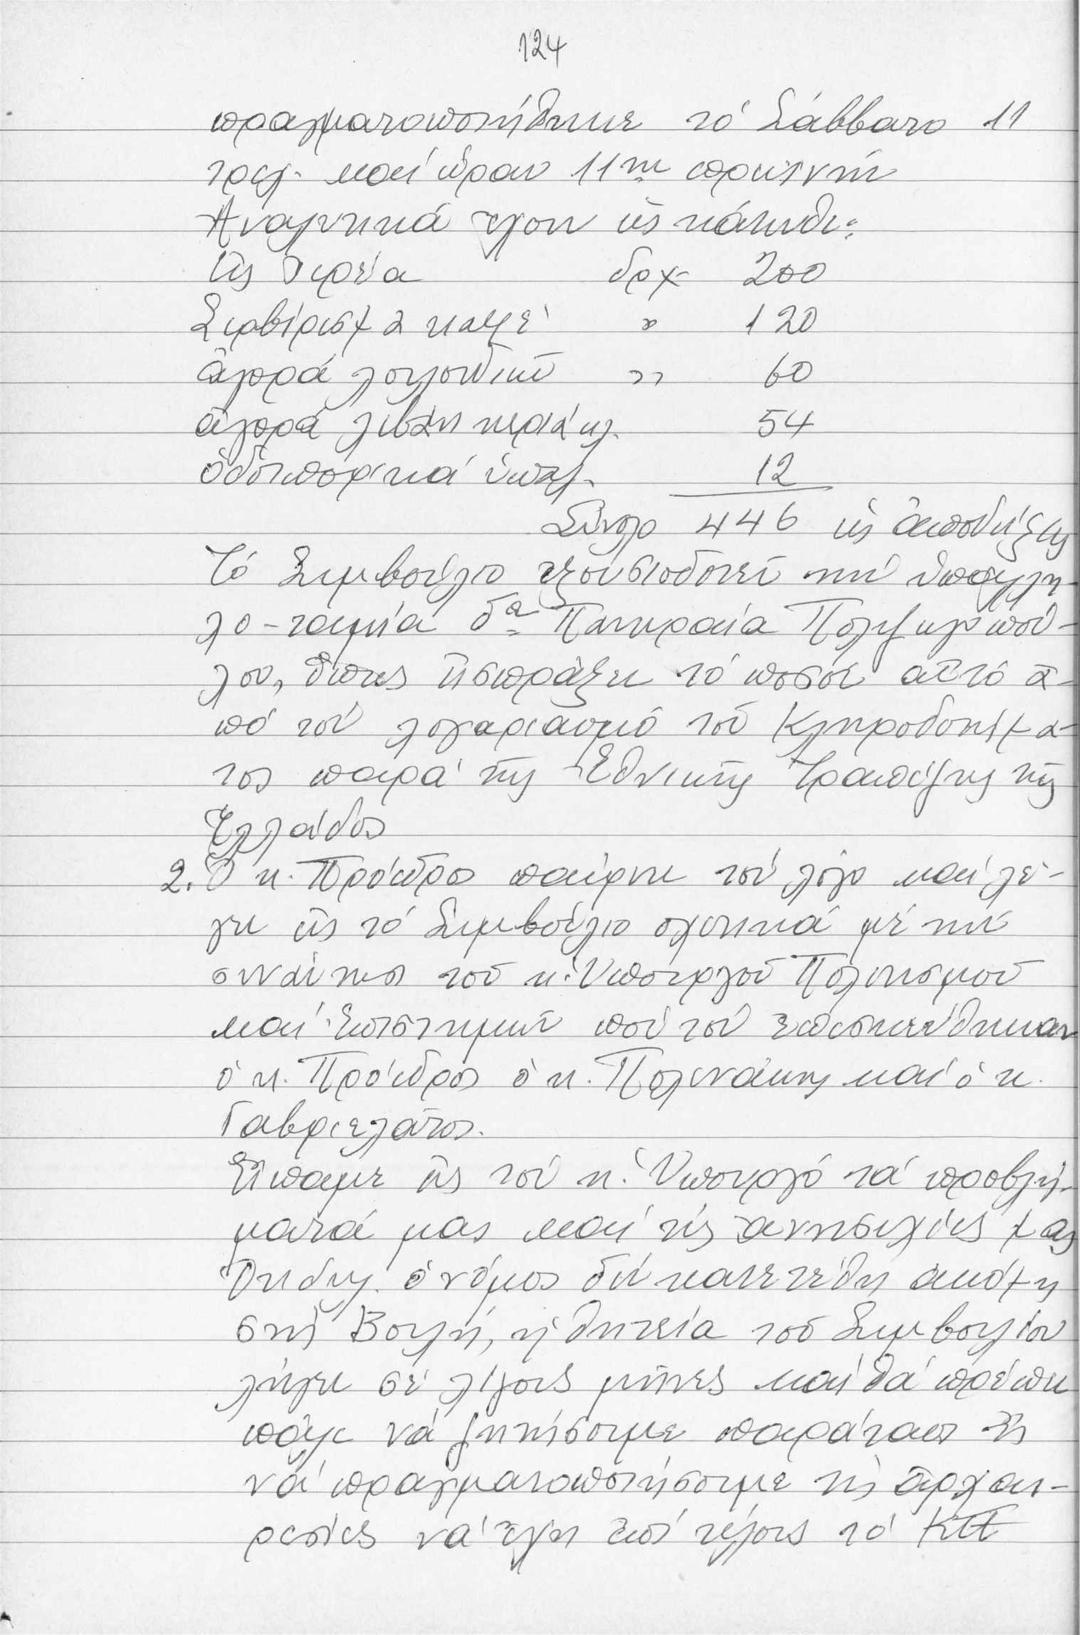 124
πραγματοποιήθηκε τό Σάββατο 11
τρέχ. καί ὥραν 11ην πρωϊνήν
Ἀναλυτικά ἔχουν ὡς κάτωθι:
Εἰς Ἱερέα δρχ 200
Σερβίρισμα καφέ " 120
ἀγορά λουλουδιῶν " 60
ἀγορά λιβάνι κεριά κλ. 54
ὁδοιπορικά ὑπαλ. 12
Σύνολο 446 εἰς ἀποδείξεις
Τό Συμβούλιο ἐξουσιοδοτεῖ τήν ὑπάλλη-
λο-ταμία δα Παγκρααία
λου, ὅπως εἰσπράξει τό ποσόν αὐτό ἀ-
πό τόν λογαριασμό τοῦ Κληροδοτήμα-
τος παρά τῆς Ἐθνικῆς Τραπέζης τῆς
Ἑλλάδος
2. Ὁ κ. Πρόεδρος παίρνει τόν λόγο καί λέ-
γει εἰς τό Συμβούλιο σχετικά μέ τήν
συνάντησι τοῦ κ. Ὑπουργοῦ Πολιτισμοῦ
καί Ἐπιστημῶν πού τόν ἐπισκεύθηκαν
ὁ κ. Πρόεδρος ὁ κ. Πολυνάκης καί ὁ κ.
Γαβριελᾶτος.
Εἴπαμε εἰς τόν κ. Ὑπουργό τά προβλή-
ματά μας καί τίς ἀνησυχίες μας
Ὅτι δηλ. ὁ νόμος δέν κατετέθη ἀκόμη
στή Βουλή, ἡ θητεία τοῦ Συμβουλίου
λήγει σέ λίγους μῆνες καί θά πρέπει
πάλι νά ζητήσουμε παράτασι ἤ
νά πραγματοποιήσουμε τίς ἀρχαι-
ρεσίες νά ἔχη ἐπί τέλους τό